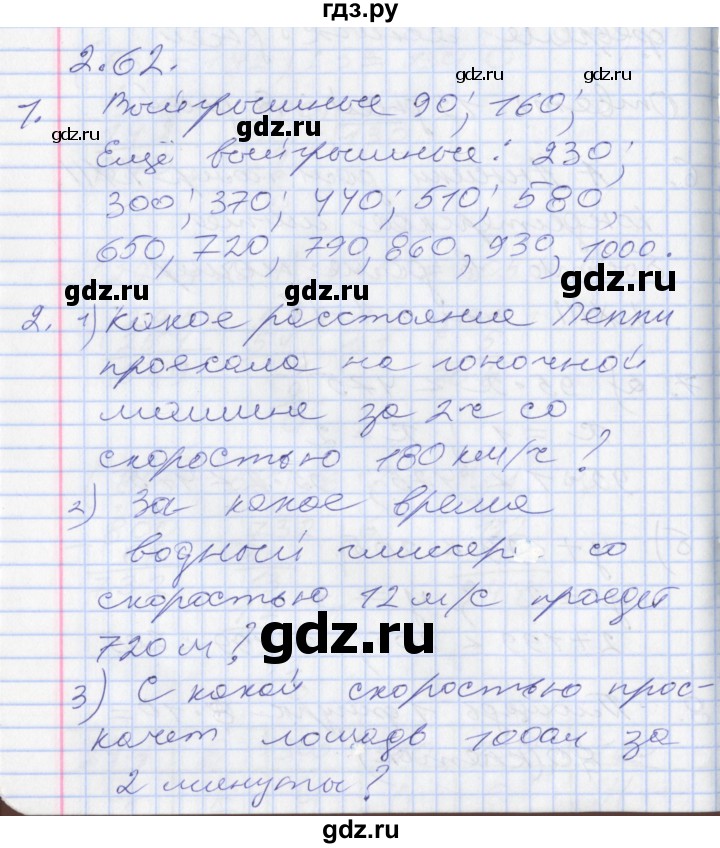 гдз.ру
2.62.
gdz.ru
gdz.ru
1. Выигрышные 90; 160;
gdz.ru
gdz.ru
Ещё выигрышные: 230;
300; 370; 440; 510; 580,
650, 720, 790, 860, 930, 1000.
gdz.ru
gdz.ru
gdz.ru
2. 1) Какое расстояние Пеппи
проехала на гоночной
машине за 2ч со
скоростью 180 км/ч?
2) За какое время
водный глиссер со
скоростью 12 м/с проедет
720 м?
gdz.ru
3) С какой скоростью прос-
качет лошадь 1000м за
2 минуты?
gdz.ru
gdz.ru
gdz.ru